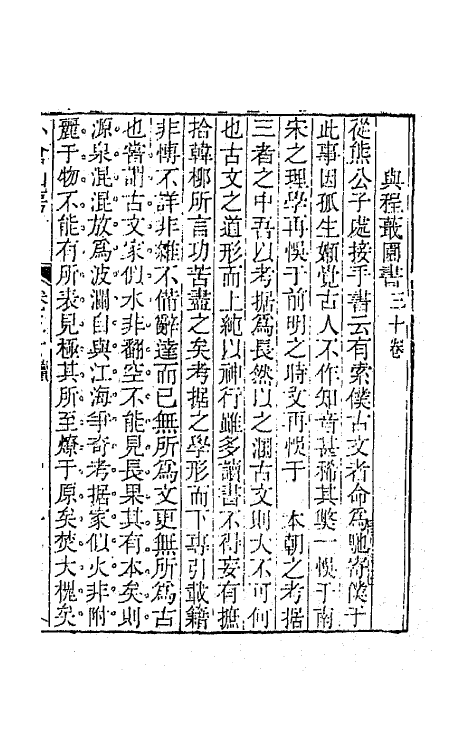 與程蕺園書三十卷
從熊公子處接手書云有索僕古文者命爲馳寄僕于
此事因孤生懶覺古人不作知音甚稀其弊一悞于南
宋之理學再悞于前明之時文再悞于　本朝之考据
三者之中吾以考据爲長然以之溷古文則大不可何
也古文之道形而上純以神行雖多讀書不得妄有摭
拾韓柳所言功苦盡之矣考据之學形而下專引載籍
非博不詳非雜不備辭達而已無所爲文更無所爲古
也嘗謂古文家似水非翻空不能見長果其有本矣則
源泉混混放爲波瀾自與江海爭奇考据家似火非附
麗于物不能有所表見極其所至燎于原矣焚大槐矣
小倉山房